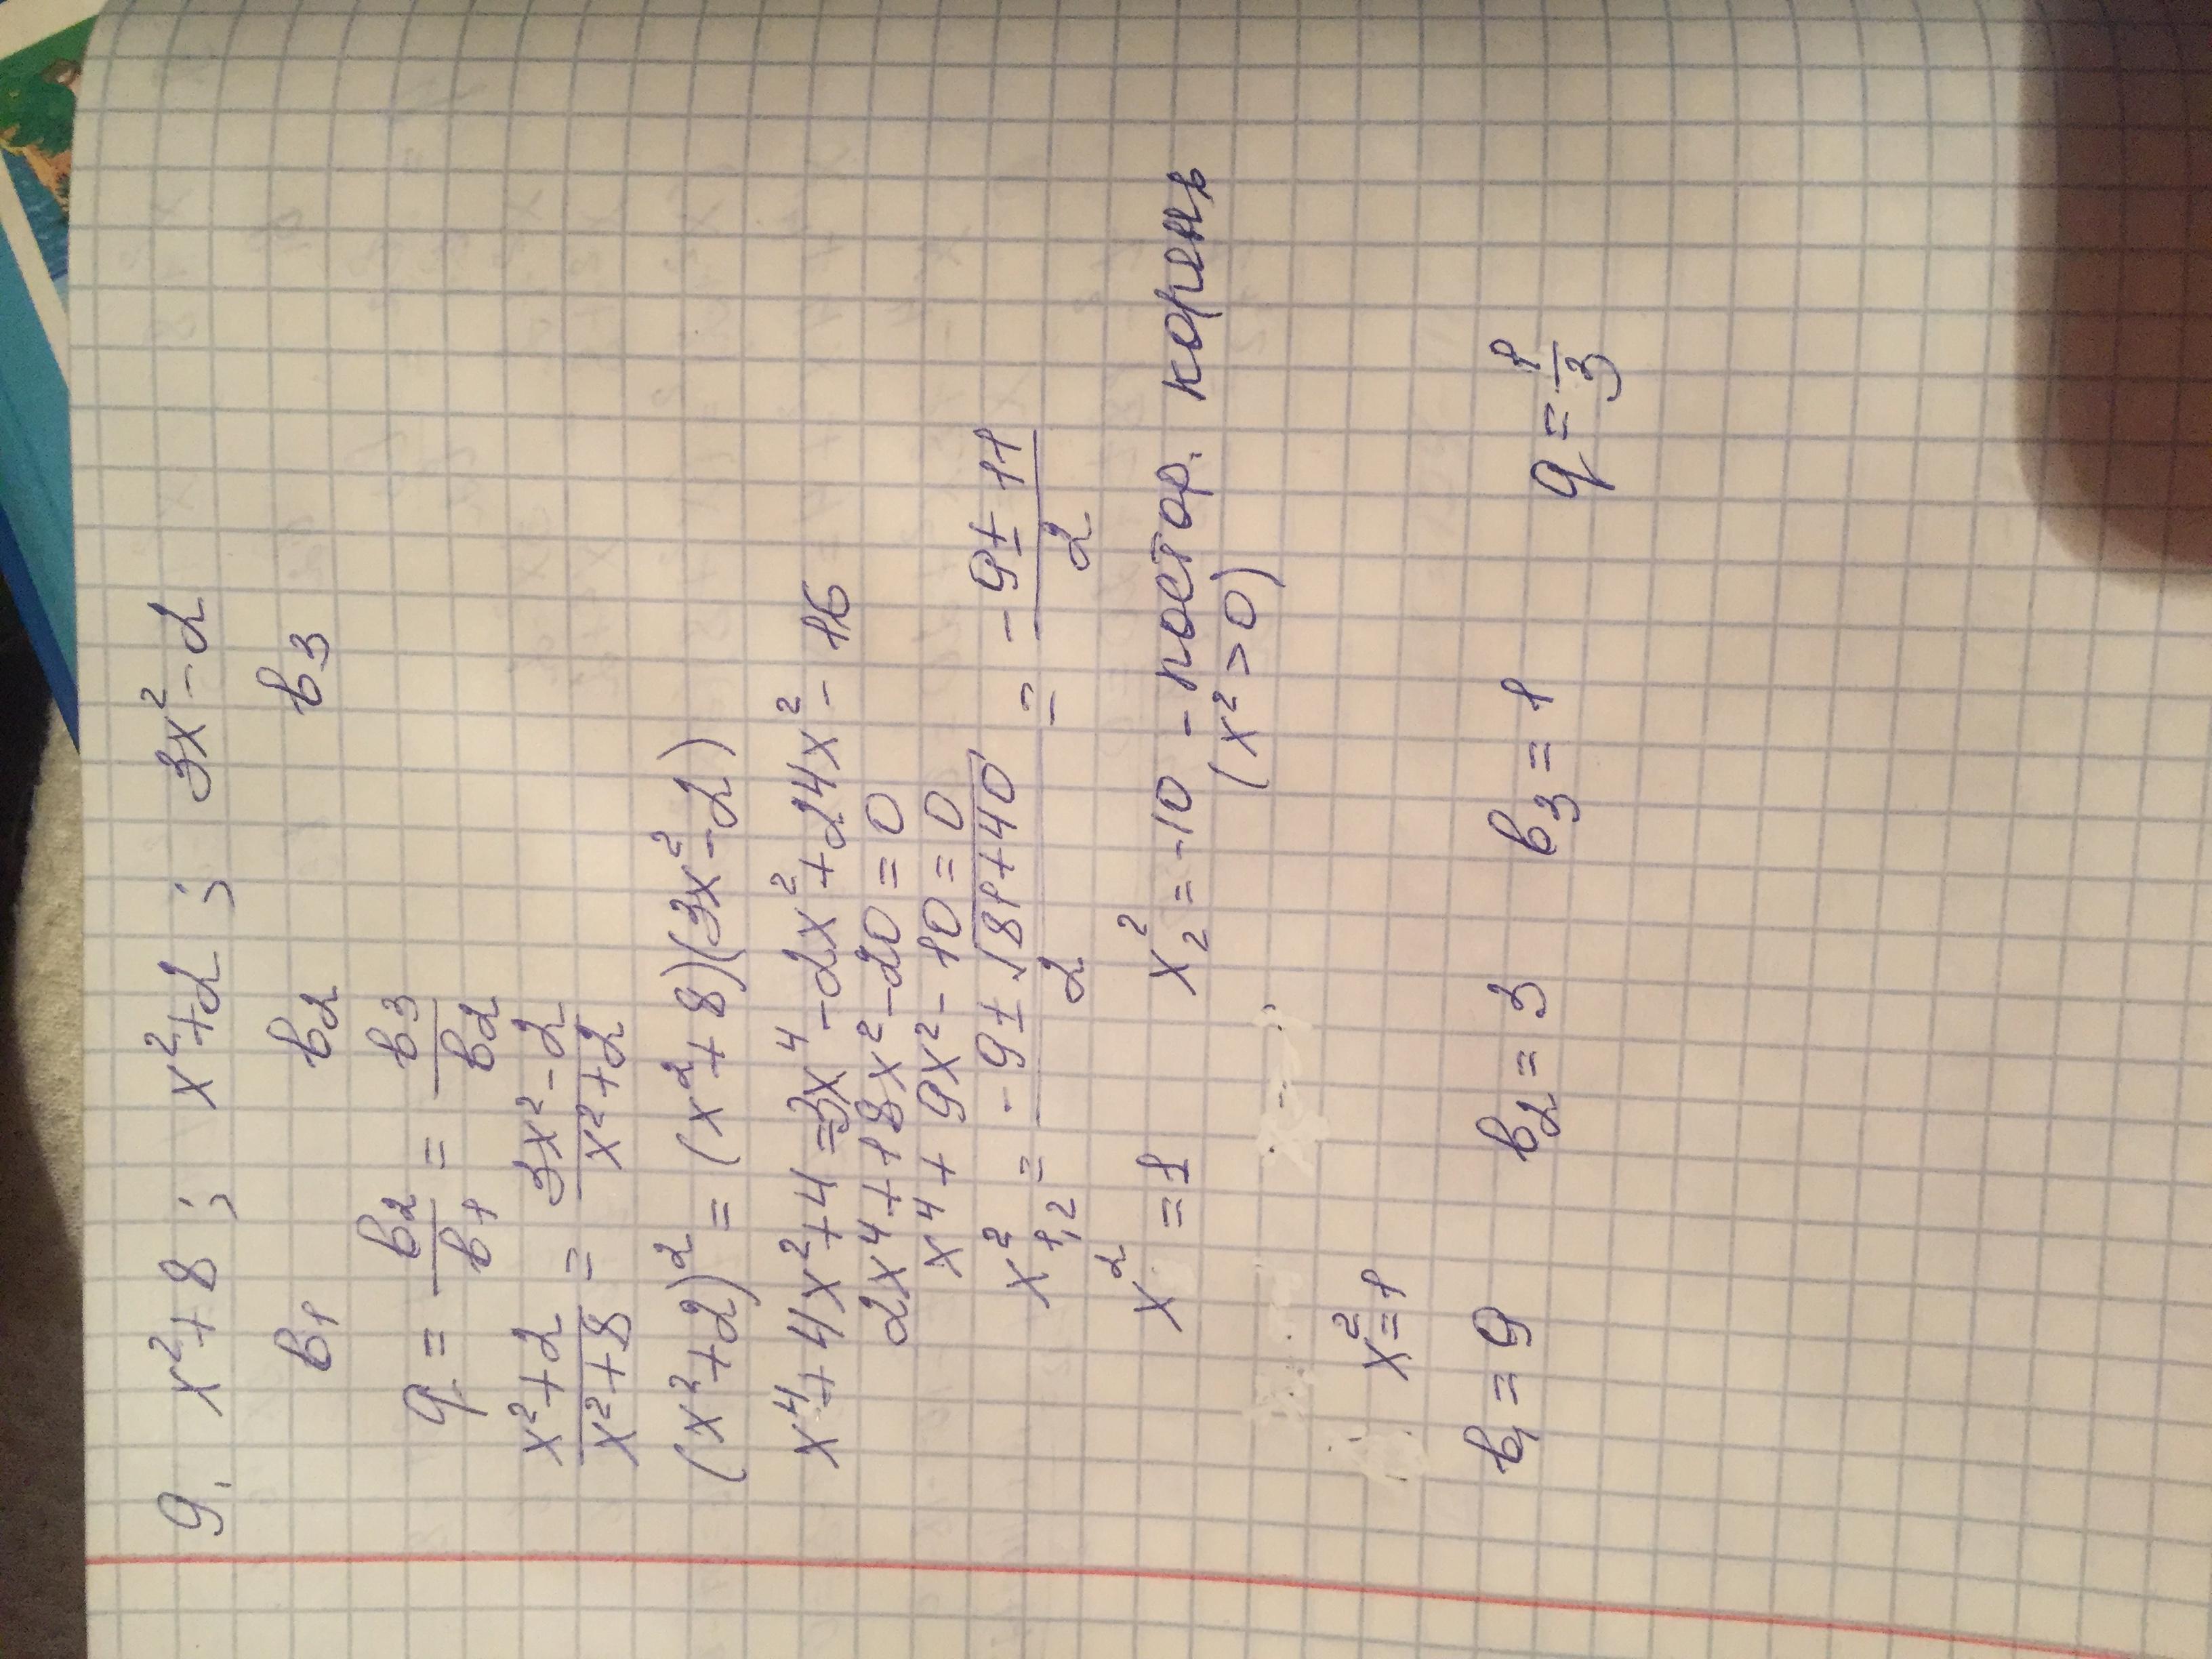 9. x²+8 ; x²+2 ; 3x²-2
b₁ b₂ b₃
q = b₂/b₁ = b₃/b₂
(x²+2)/(x²+8) = (3x²-2)/(x²+2)
(x²+2)² = (x²+8)(3x²-2)
x⁴+4x²+4=3x⁴-2x²+24x²-16
2x⁴+18x²-20=0
x⁴+9x²-10=0
x²₁,₂ = (-9±√(81+40))/2 = (-9±11)/2
x²=1 x₂²=-10 - постор. корень
(x²>0)
x²=1
b₁=9 b₂=3 b₃=1 q=1/3